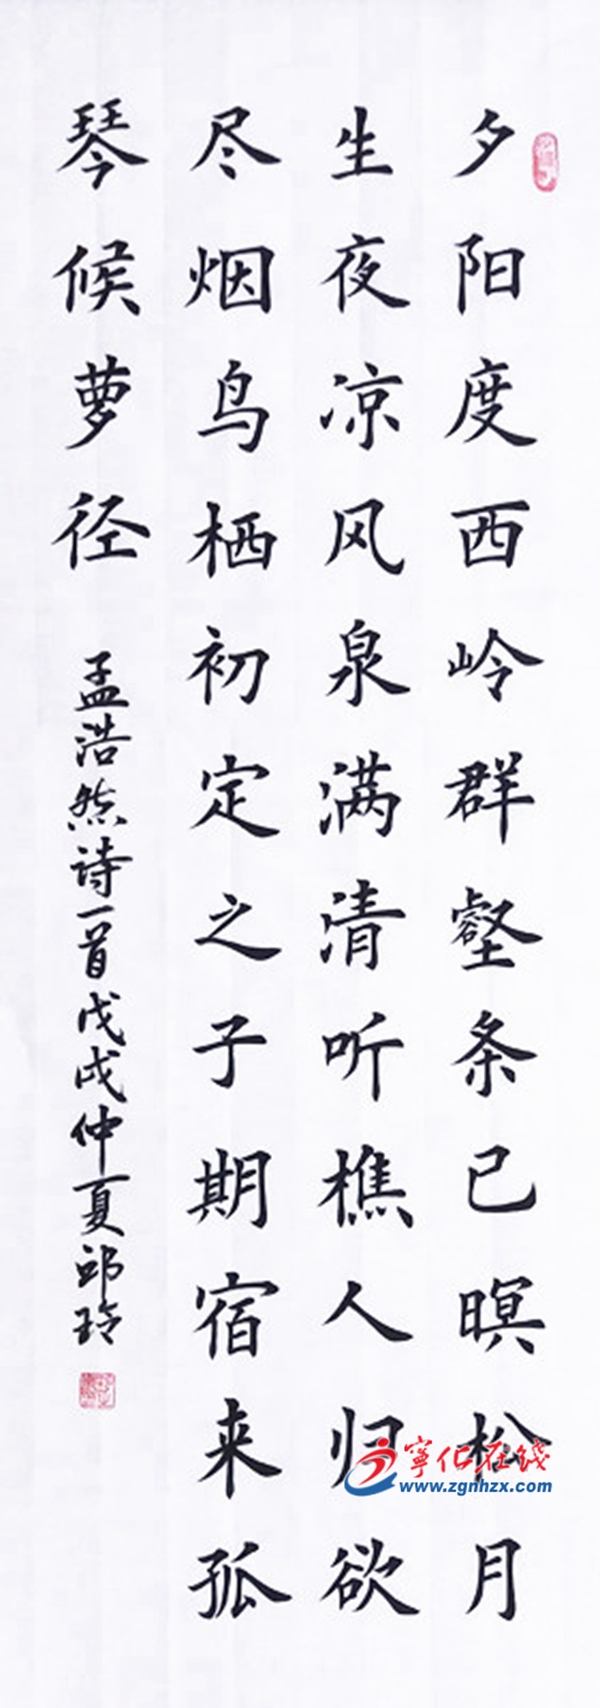 夕阳度西岭群壑条已暝松月
生夜凉风泉满清听樵人归欲
尽烟鸟栖初定之子期宿来孤
琴候萝径
孟浩然诗一首戊戌仲夏邱玲
宁化在线
www.zgnhzx.com